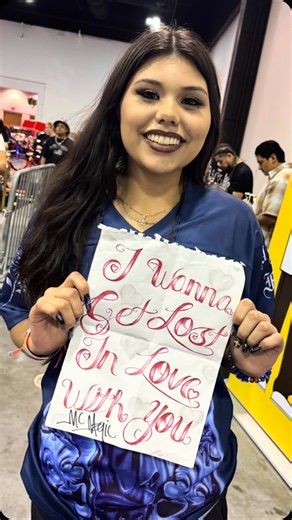 I Wanna
Get Lost
In Love
With You
MC Magic